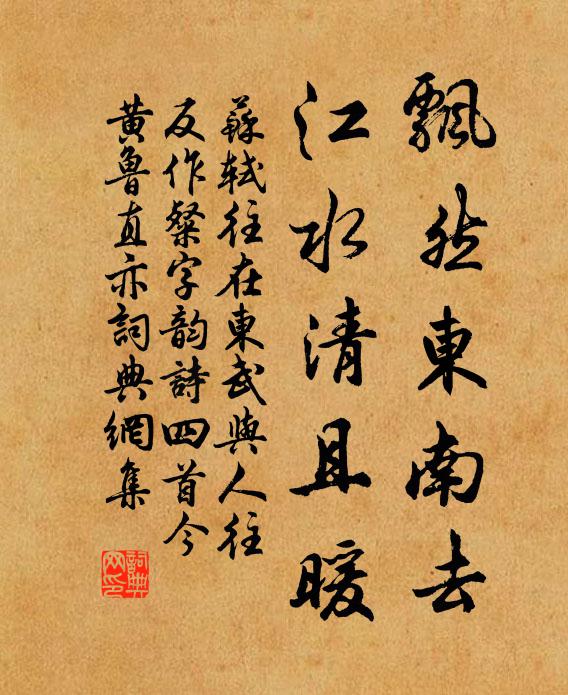 飄然東南去
江水清且暖
蘇軾往在東武與人往
反作粲字韵詩四首今
黄魯直亦詞典網集
詞典网印